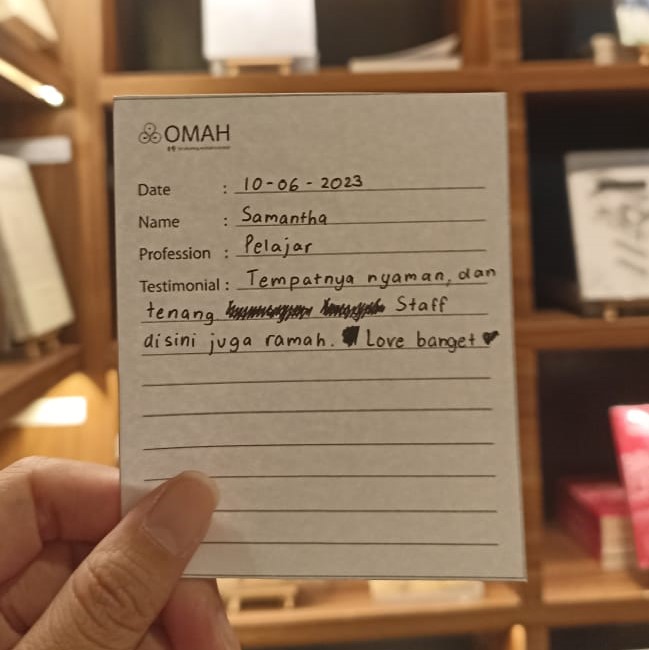 OMAH
Date : 10-06-2023
Name : Samantha
Profession : Pelajar
Testimonial : Tempatnya nyaman, dan
tenang Staff
disini juga ramah. Love banget